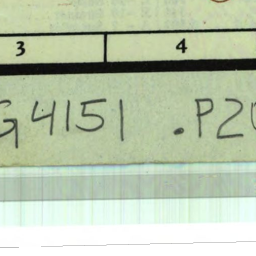 3 4
G4151 .P20